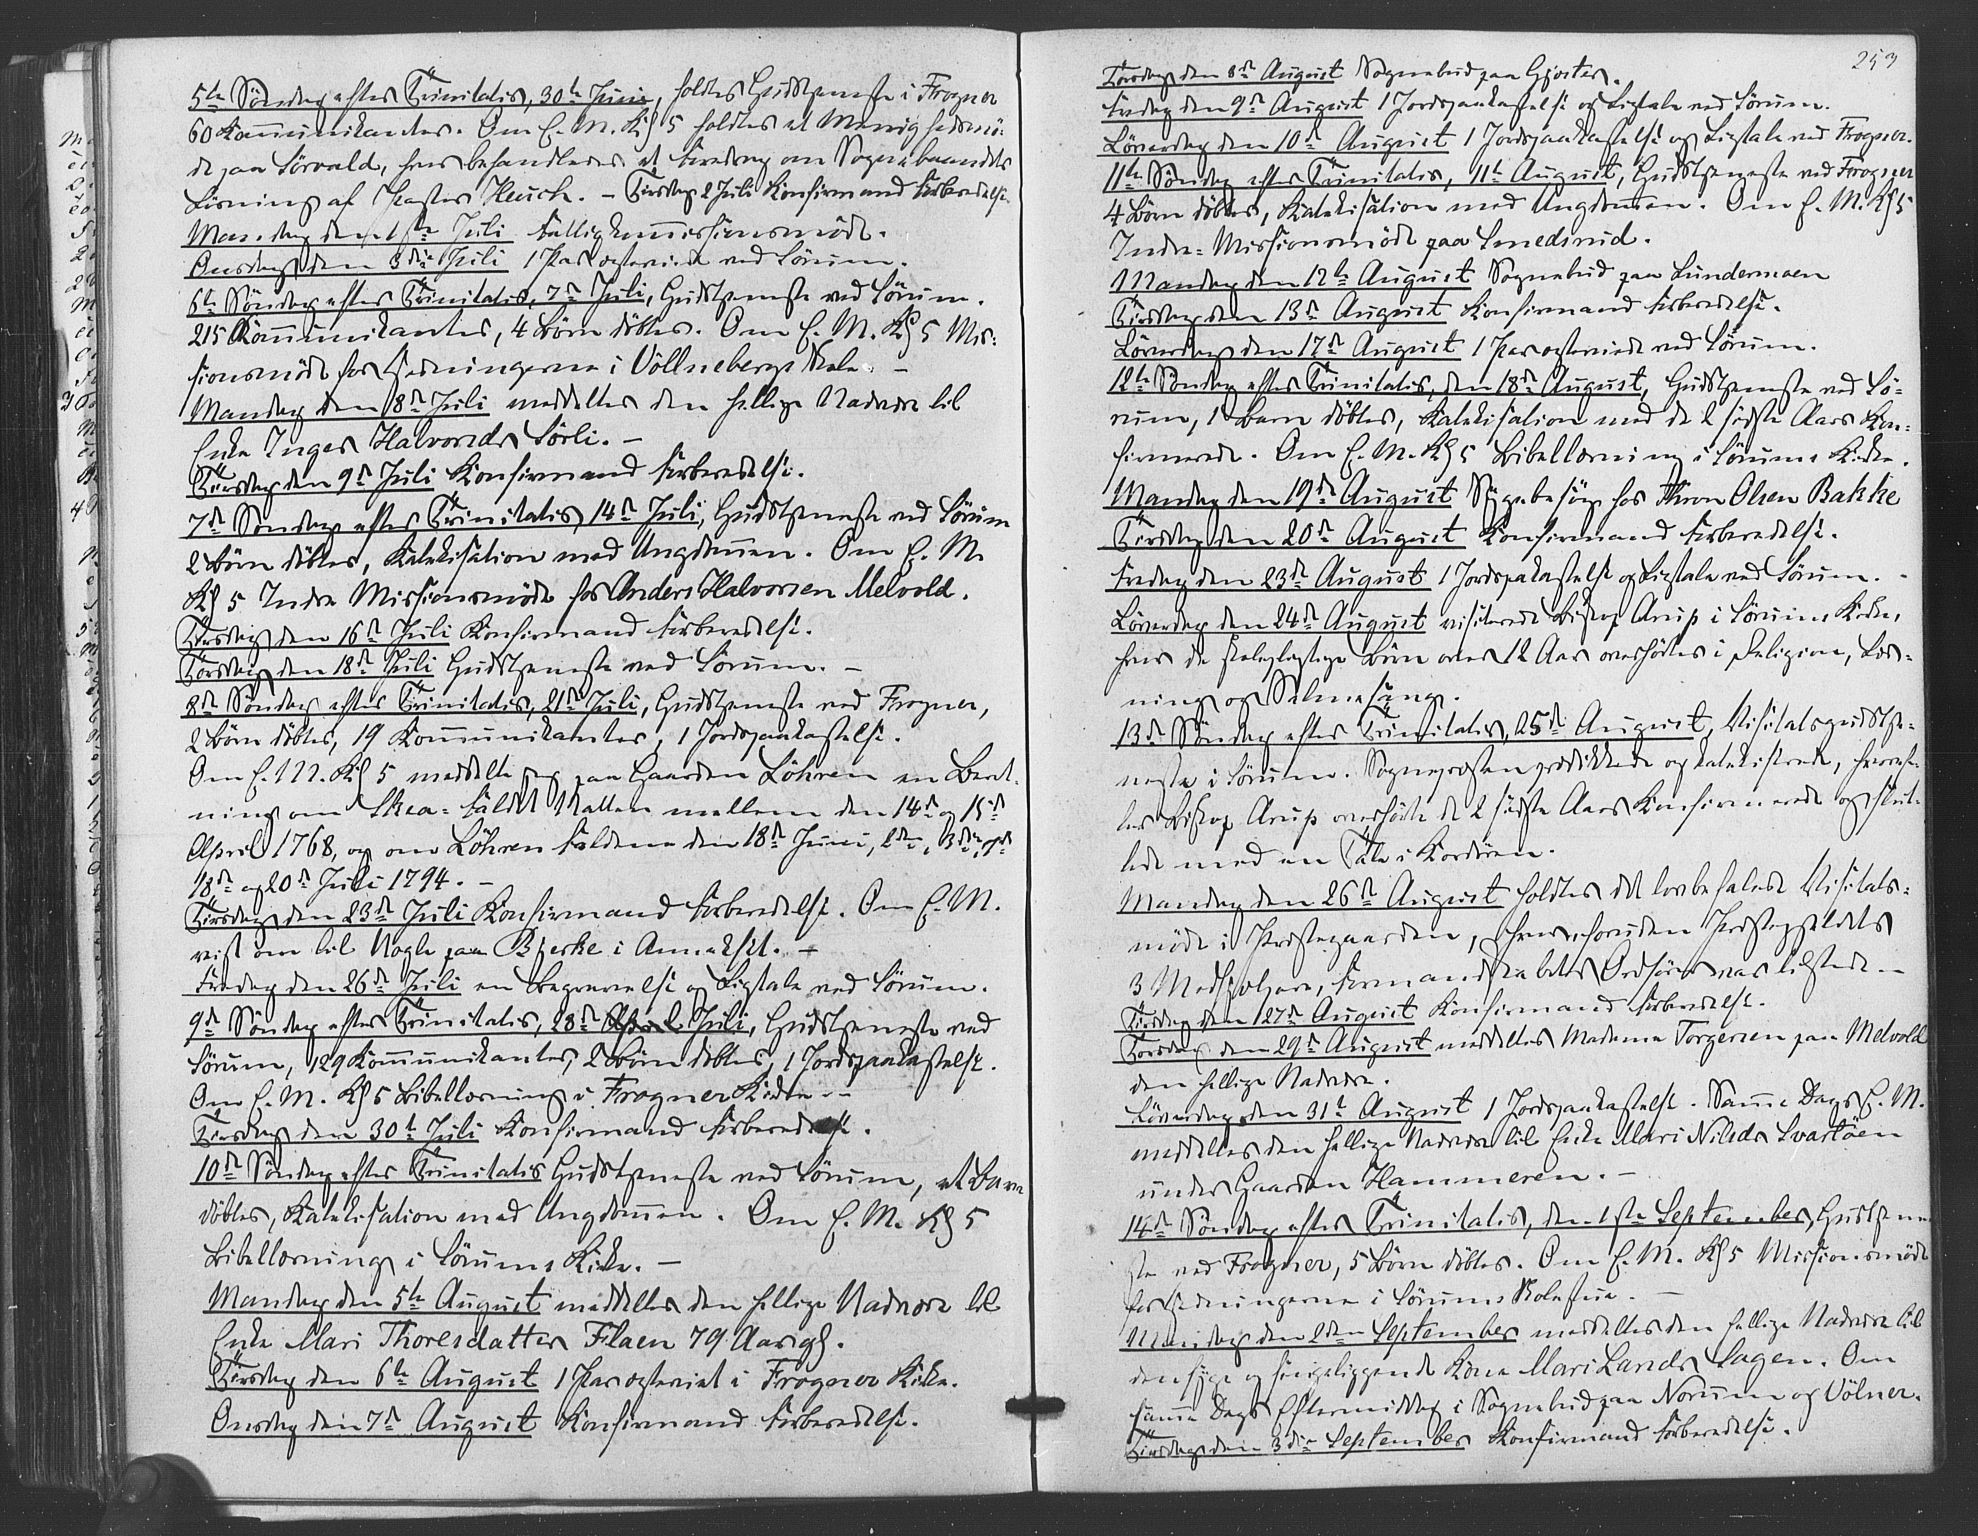 5te Søndag efter Trinitatis, 30te Juni, holdtes Gudstjeneste i Frogner
60 Kommunikanter. Om E. M. Kl 5 holdtes et Menighedsmø-
de paa Sørvald, hvor behandledes et Foredrag om Sognebaandets
Løsning af Pastor Heuch. – Tirsdag 2 Juli Konfirmand Forberedelse.
Mandag den 1ste Juli Fælleskommissionsmøde.
Onsdag den 3die Juli 1 Par ægteviet ved Sørum.
6te Søndag efter Trinitatis, 7de Juli, Gudstjeneste ved Sørum.
215 Kommunikanter, 4 Børn døbtes. Om E. M. Kl 5 Mis-
sionsmøde for Hedningerne i Völlneberg Skole. –
Mandag den 8de Juli meddeltes den hellige Nadvere til
Enke Inger Halvorsdr Sørli. –
Tirsdag den 9de Juli Konfirmand Forberedelse.
7de Søndag efter Trinitatis 14de Juli, Gudstjeneste ved Sørum
2 Børn døbtes, Katekisation med Ungdommen. Om E. M.
Kl 5 Indre Missionsmøde hos Anders Halvorsen Melvold.
Tirsdag den 16de Juli Konfirmand Forberedelse.
Torsdag den 18de Juli Gudstjeneste ved Sørum. –
8de Søndag efter Trinitatis, 21de Juli, Gudstjeneste ved Frogner,
2 Børn døbtes, 19 Kommunikanter, 1 Jordspaakastelse.
Om E. M. Kl 5 meddelte jeg paa Gaarden Löhren en Beret-
ning om Skea-Faldet Natten mellem den 14de og 15de
April 1768, og om Löhren Faldene den 18de Juni, 2den, 3die,
18de og 20de Juli 1794. –
Tirsdag den 23de Juli Konfirmand Forberedelse. Om E. M.
reist om til Nogle paa Bjerke i Annekset. –
Fredag den 26de Juli en Begravelse og Ligtale ved Sørum.
9de Søndag efter Trinitatis, 28de April Juli, Gudstjeneste ved
Sørum, 129 Kommunikanter, 2 Børn døbtes, 1 Jordspaakastelse.
Om E. M. Kl 5 Bibellæsning i Frogner Kirke. –
Tirsdag den 30te Juli Konfirmand Forberedelse.
10de Søndag efter Trinitatis Gudstjeneste ved Sørum, et Barn
døbtes, Katekisation med Ungdommen. Om E. M. Kl 5
Bibellæsning i Sørums Kirke. –
Mandag den 5te August meddeltes den hellige Nadvere til
Enke Mari Thoresdatter Flaen 79 Aar gl.
Tirsdag den 6te August 1 Par ægteviet i Frogner Kirke.
Onsdag den 7de August Konfirmand Forberedelse.
253
Torsdag den 8de August Sognebud paa Gjøster.
Fredag den 9de August 1 Jordspaakastelse og Ligtale ved Sørum.
Løverdag den 10de August 1 Jordspaakastelse og Ligtale ved Frogner.
11te Søndag efter Trinitatis, 11te August, Gudstjeneste ved Frogner
4 Børn døbtes, Katekisation med Ungdommen. Om E. M. Kl 5
Indre-Missionsmøde paa Smedsrud.
Mandag den 12te August Sognebud paa Lundermoen
Tirsdag den 13de August Konfirmand Forberedelse.
Løverdag den 17de August 1 Par ægteviede ved Sørum.
12te Søndag efter Trinitatis, den 18de August, Gudstjeneste ved Sø-
rum, 1 Barn døbtes, Katekisation med de 2 sidste Aars Kon-
firmerede. Om E. M. Kl 5 Bibellæsning i Sørums Kirke.
Mandag den 19de August Sygebesøg hos Thron Olsen Bakke
Tirsdag den 20de August Konfirmand Forberedelse.
Fredag den 23de August 1 Jordspakastelse og Ligtale ved Sørum. –
Løverdag den 24de August visiterede Biskop Arup i Sørums Kirke,
hvor de skolepligtige Børn over 12 Aar overhørtes i Religion, Læs-
ning og Salmesang.
13de Søndag efter Trinitatis, 25de August, Visitatsgudstje-
neste i Sørum. Sognepresten prædikkede og katekiserede, hvoref-
ter Biskop Arup overhørte de 2 sidste Aars Konfirmerede og slut-
tede med en Tale i Kordøren.
Mandag den 26de August holdtes det lovbefalede Visitats-
møde i Prestegaarden, hvor, foruden Prestegjeldets
3 Medhjælpere, Formandskabets Ordfører var tilstede. –
Tirsdag den 27de August Konfirmand Forberedelse.
Torsdag den 29de August meddeltes Madame Torgersen paa Melvold
den hellige Nadvere.
Løverdag den 31te August 1 Jordspaakastelse. Samme Dags E. M.
meddeltes den hellige Nadvere til Enke Mari Nilsdr Svartöen
under Gaarden Hammeren. –
14de Søndag efter Trinitatis, den 1ste September, Gudstjene-
ste ved Frogner, 5 Børn døbtes. Om E. M. Kl 5 Missionsmøde
for Hedningerne i Sørums Skolestue. –
Mandag den 2den September meddeltes den hellige Nadvere til
den syge og sengeliggende Kone Mari Larsdr Lagen. Om
samme Dags Eftermiddag i Sognebud paa Norum og Völner.
Tirsdag den 3die September Konfirmand Forberedelse.